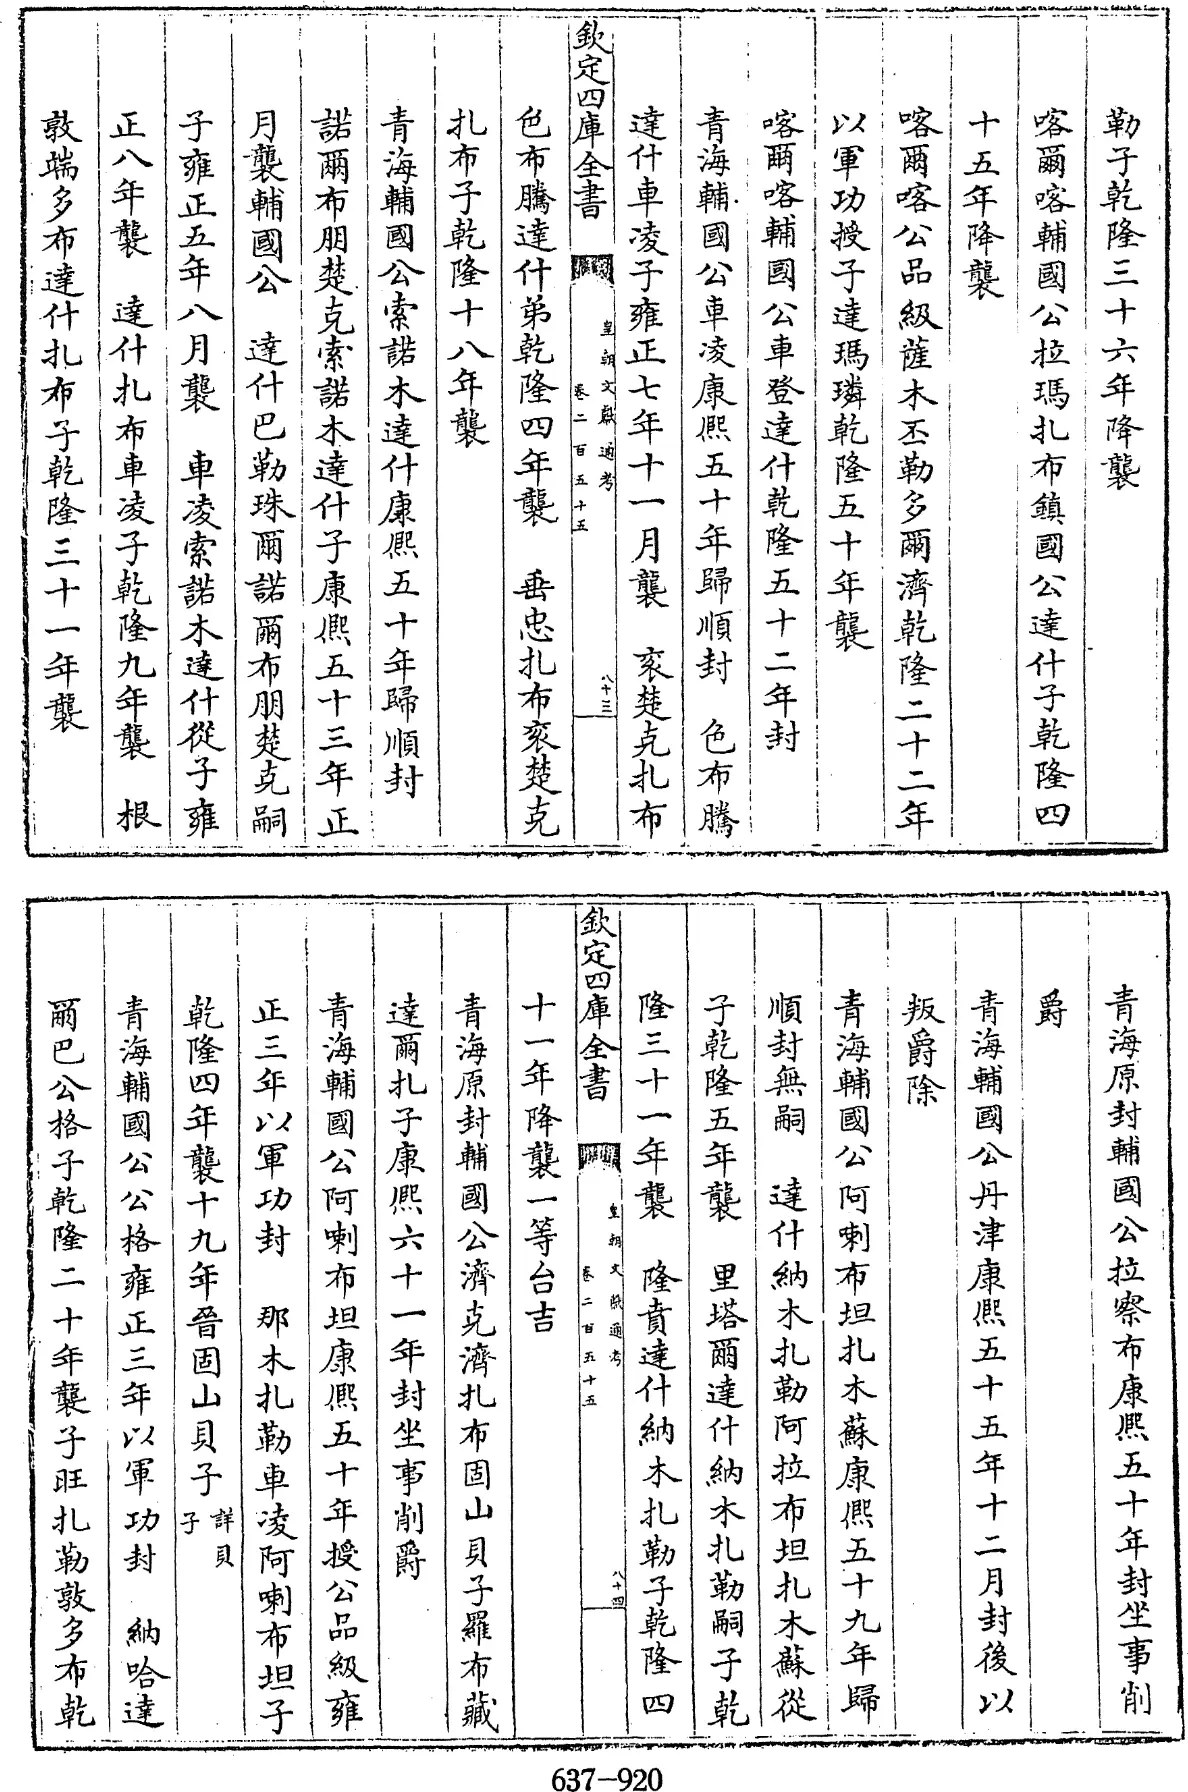 勒子乾隆三十六年降襲
喀爾喀輔國公拉瑪扎布鎮國公達什子乾隆四
十五年降襲
喀爾喀公品級薩木丕勒多爾濟乾隆二十二年
以軍功授子達瑪璘乾隆五十年襲
喀爾喀輔國公車登達什乾隆五十二年封
青海輔國公車凌康熙五十年歸順封　色布騰
達什車凌子雍正七年十一月襲　衮楚克扎布
欽定四庫全書
皇朝文獻通考
卷二百五十五
八十三
色布騰達什弟乾隆四年襲　垂忠扎布衮楚克
扎布子乾隆十八年襲
青海輔國公索諾木達什康熙五十年歸順封
諾爾布朋楚克索諾木達什子康熙五十三年正
月襲輔國公　達什巴勒珠爾諾爾布朋楚克嗣
子雍正五年八月襲　車凌索諾木達什從子雍
正八年襲　達什扎布車凌子乾隆九年襲　根
敦端多布達什扎布子乾隆三十一年襲
青海原封輔國公拉察布康熙五十年封坐事削
爵
青海輔國公丹津康熙五十五年十二月封後以
叛爵除
青海輔國公阿喇布坦扎木蘇康熙五十九年歸
順封無嗣　達什納木扎勒阿拉布坦扎木蘇從
子乾隆五年襲　里塔爾達什納木扎勒嗣子乾
隆三十一年襲　隆賁達什納木扎勒子乾隆四
欽定四庫全書
皇朝文獻通考
卷二百五十五
八十四
十一年降襲一等台吉
青海原封輔國公濟克濟扎布固山貝子羅布藏
達爾扎子康熙六十一年封坐事削爵
青海輔國公阿喇布坦康熙五十年授公品級雍
正三年以軍功封　那木扎勒車凌阿喇布坦子
乾隆四年襲十九年晉固山貝子詳貝子
青海輔國公公格雍正三年以軍功封　納哈達
爾巴公格子乾隆二十年襲子旺扎勒敦多布乾
637-920